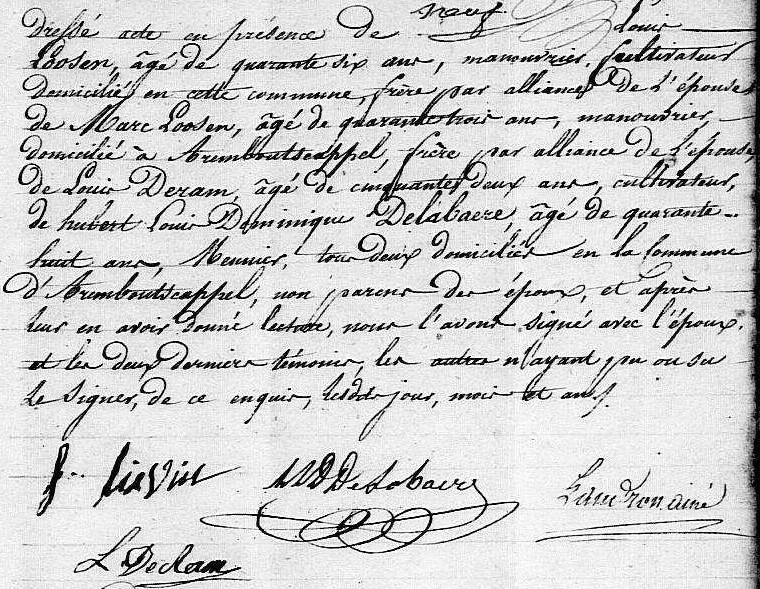 Dressé acte en présence de Louis
Loosen, âgé de quarante six ans, manouvrier, cultivateur
domicilié en cette commune, frère par alliance de l'épouse,
de Marc Loosen, âgé de quarante trois ans, manouvrier,
domicilié à Armbouttscappel, frère par alliance de l'épouse,
de Louis Deram, âgé de cinquante deux ans, cultivateur,
de hubert Louis Dominique Delabaere, âgé de quarante
huit ans, Meunier, tous deux domiciliés en la Commune
d'Armbouttscappel, non parens des époux, et après
leur en avoir donné lecture, nous l'avons signé avec l'époux,
et les deux derniers témoins, les autres n'ayant pu ou su
le signer, de ce enquis, lesdits jour, mois et an.
Delabaere
Landron ainé